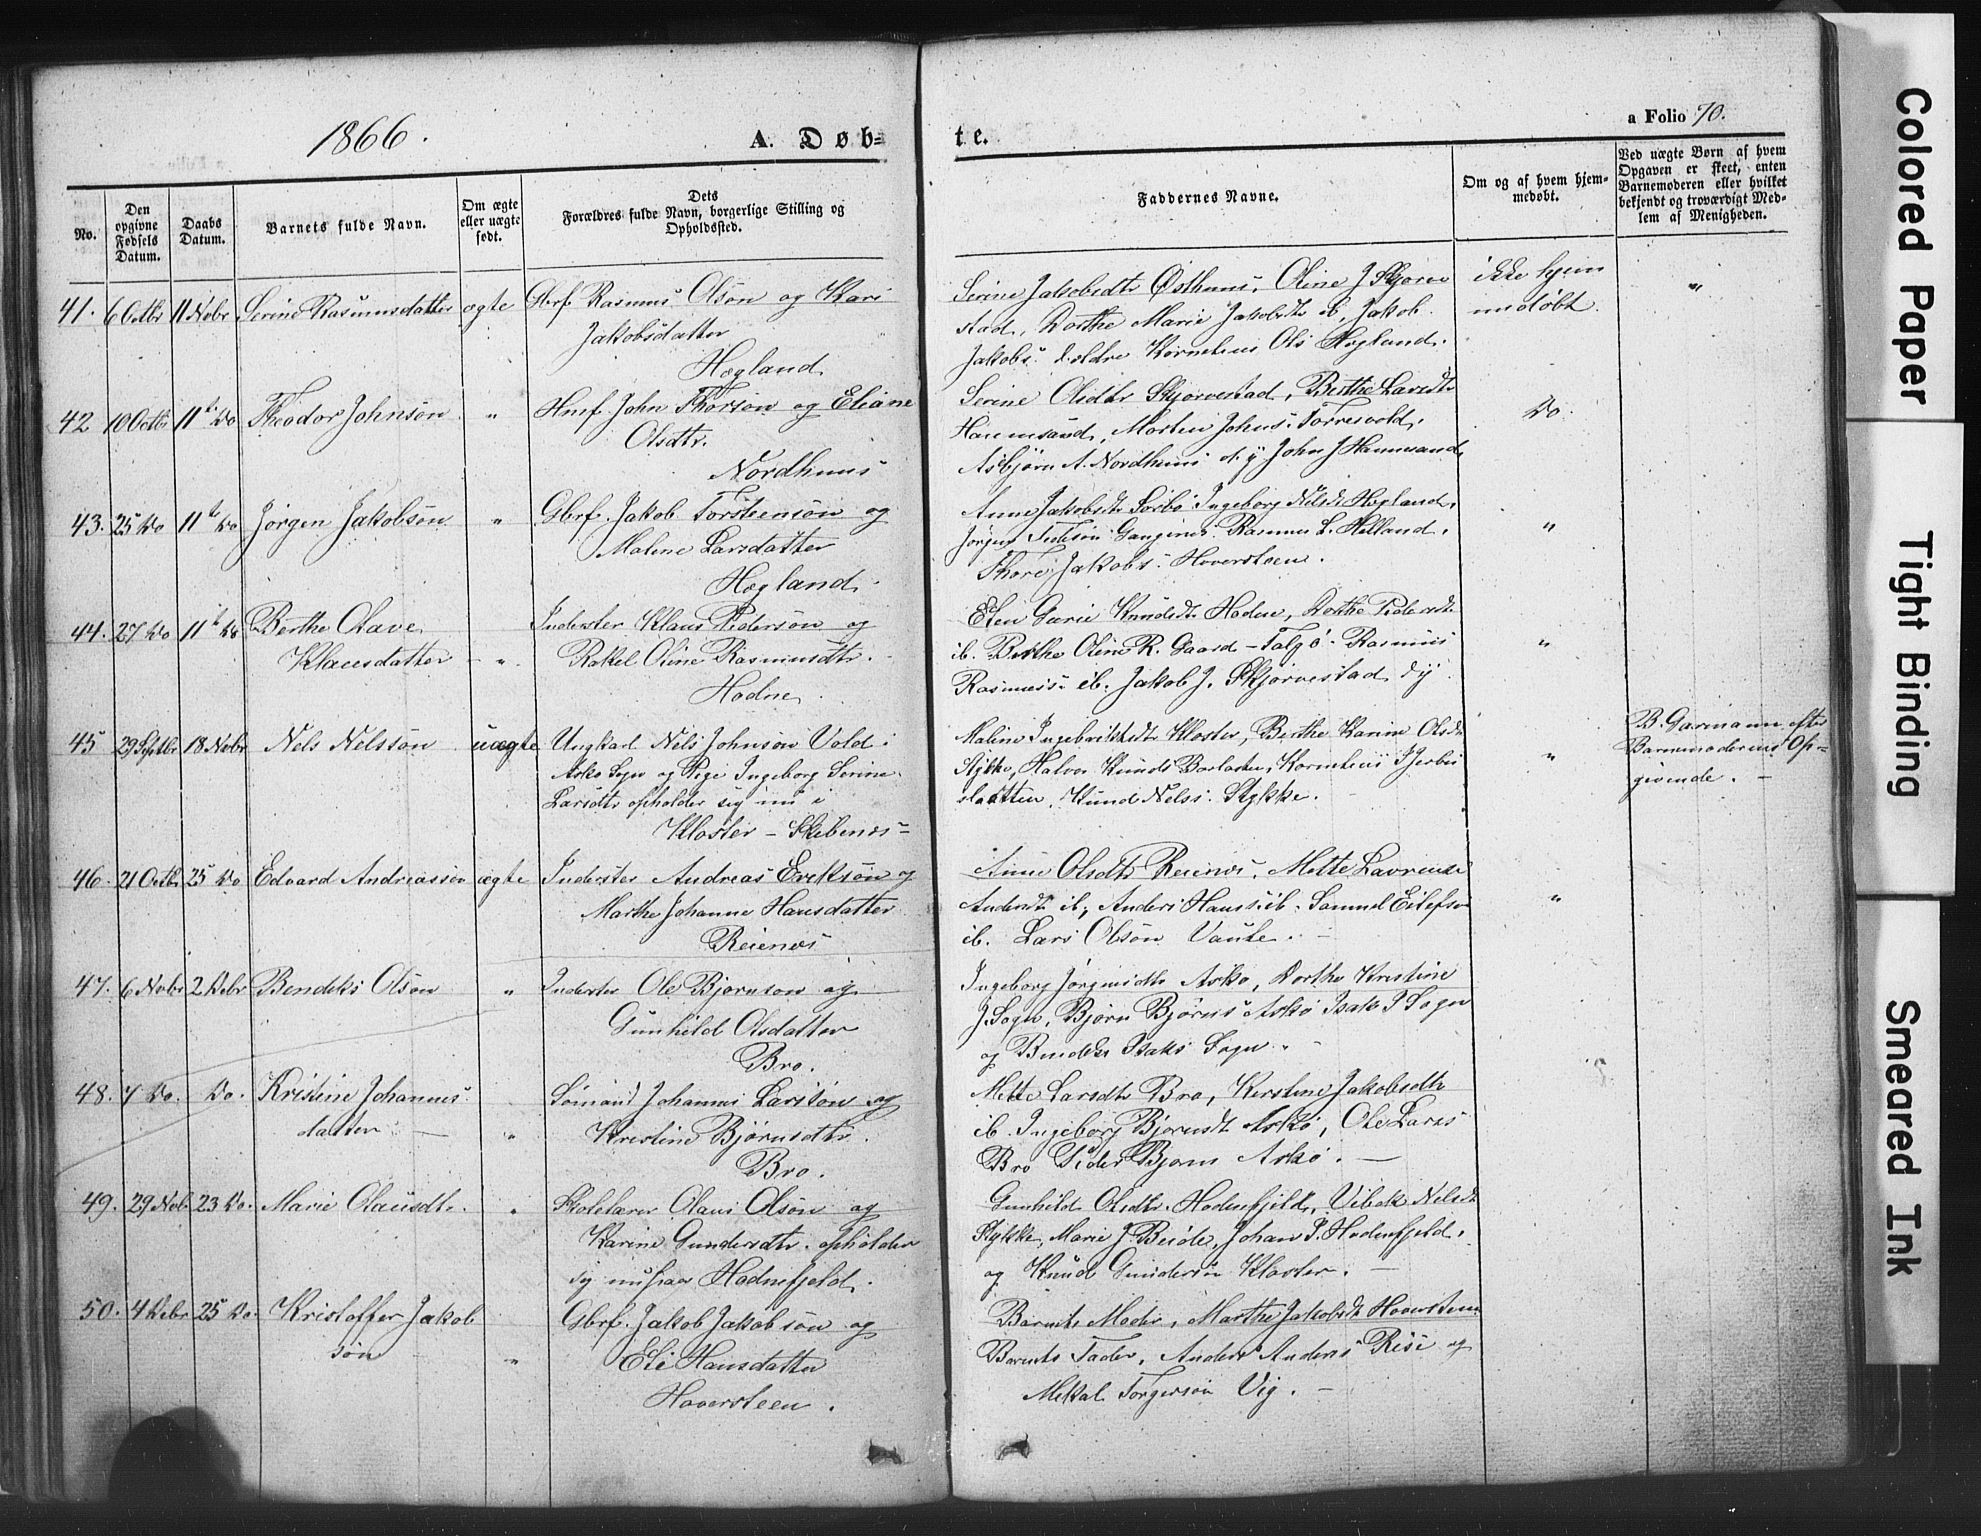 1866.
A. Døb-
te.
a Folio 70.
No.
Den opgivne Fødsels Datum.
Daabs Datum.
Barnets fulde Navn.
Om ægte eller uægte født.
Dets Forældres fulde Navn, borgerlige Stilling og Opholdssted.
Faddernes Navne.
Om og af hvem hjemmedøbt.
Ved uægte Børn af hvem Opgaven er skeet, enten Barnemoderen eller hvilket bekjendt og troværdigt Medlem af Menigheden.
41. 6 Octbr 11 Nobr Serine Rasmusdatter ægte Gbrf Rasmus Olsøn og Kari
Jakobsdatter
Hegland.
Serine Jakobsdtr Østhuus, Oline J Skjørve
stad, Dorthe Marie Jakobsdtr ib, Jakob
Jakobs. d. ældre Kornelius Ols Hegland.
ikke hjem
medøbt.
"
42 10 Octbr 11te Do Theodor Johnsøn " Hmf. John Thorsøn og Eliane
Olsdtr.
Nordhuus
Serine Olsdtr Skjørvestad, Berthe Larsdtr
Hanmesand, Morten Johns. Torresvold,
Asbjørn A. Nordhuus d. y John J Hanmesand
Do.
43. 25 Do 11te Do Jørgen Jakobsøn " Gbrf. Jakob Torsteensøn og
Malene Larsdatter
Hegland.
Anne Jakobsdtr Sørbø, Ingeborg Nelsdtr Hegland,
Jørgen Rasmus L. Helland,
Thore Jakobs. Hoversteen.
"
44. 27 Do 11te Do Berthe Olave
Klausdatter " Inderster Klaus Pedersøn og
Rakel Oline Rasmusdtr.
Hodne.
Elen Knudsdtr Hodne, Dorthe Pedersdtr
ib. Berthe Oline R. Gaard - Talgø. Rasmus
Rasmuss. ib. Jakob J. Skjørvestad d y
"
45 29 Septbr 18 Nobr Nels Nelssøn uægte Ungkarl Nels Johnsøn Vold i
Askø Sogn og Pige Ingeborg Serine
Larsdtr opholder sig nu i
Kloster -
Malene Ingebrikkdtr Kloster, Berthe Karine Olsdtr
Stykke, Halvor Knuds Kornelius
slaatten, Knud Nelss. Stykke.
"
B. Garmann efter
Barnemoderens Op-
givende. -
46. 21 Octbr 25 Do Edvard Andreassøn ægte Inderster Andreas Eriksøn og
Marthe Johanne Hansdatter
Reienes
Anne Olsdtr Reienes, Mette Lavrense
Andersdtr ib, Anders Hanss. ib. Samuel Eilefsøn
ib. Lars Olsøn -
"
47. 6 Nobr 2 Debr Bendiks Olsøn " Inderster Ole Bjørnsøn og
Gunhild Olsdatter
Bro.
Ingeborg Jørginsdtr Askø, Dorthe Kristine
J. Sogn, Bjørn Bjørns Askø Isak I Sogn
og Bendiks Isaks Sogn.
48. 7 Do. Do. Kristine Johannes
datter - " Sømand Johannes Larssøn og
Kristine Bjørnsdtr.
Bro.
Mette Larsdtr Bro, Kirstine Jakobsdtr
ib. Ingeborg Bjørnsdtr Askø, Ole Larss
Bro Peder Bjørns Askø. -
49. 29 Nob. 23 Do. Marie Olausdtr. " Skolelærer Olaus Olsøn og
Karine Gundersdtr. opholder
sig nu paa Hodnefjeld.
Gunhild Olsdtr. Hodnefjeld, Vibek Nelsdtr
Stykke, Marie J. Johan P. Hodnefjeld,
og Knud Gundersøn Kloster. -
50. 4 Debr 25 Do. Kristoffer Jakob
søn - " Gbrf. Jakob Jakobsøn og
Eli Hansdatter
Hoversteen.
Barnets Moder, Marthe Jakobsdtr Hoversteen
Barnets Fader, Anders Anders Risé og
Mikal Torgersøn Vig. -
Colored Paper
Tight Binding
Smeared Ink